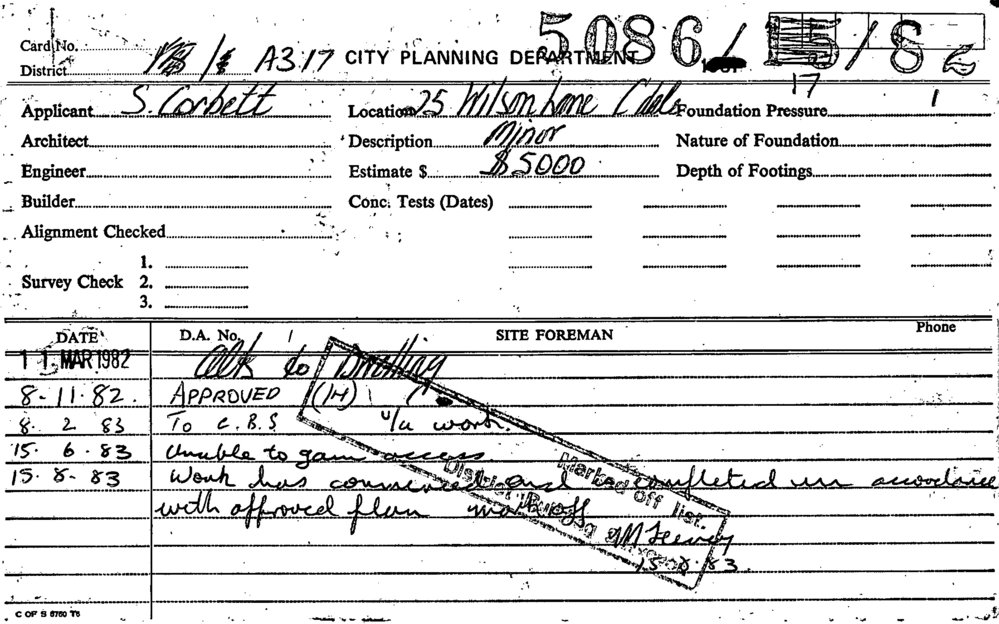 Card No.
District A317 CITY PLANNING DEPARTMENT 5086 / 15/82
17
Applicant S. Corbett Location 25 Wilson Lane Foundation Pressure 1
Architect Description Minor Nature of Foundation
Engineer Estimate $ $5000 Depth of Footings
Builder Conc. Tests (Dates)
Alignment Checked
1.
Survey Check 2.
3.
DATE D.A. No. SITE FOREMAN Phone
11 MAR 1982 Alts to Dwelling
8-11-82. APPROVED (14)
8. 2 83 To C.B.S u/a work.
15. 6. 83 Unable to gain access.
15. 8. 83 Work has commenced and is completed in accordance
with approved plan mark off
Marked off list.
District Building
15.8.83
C OF S 6760 T6